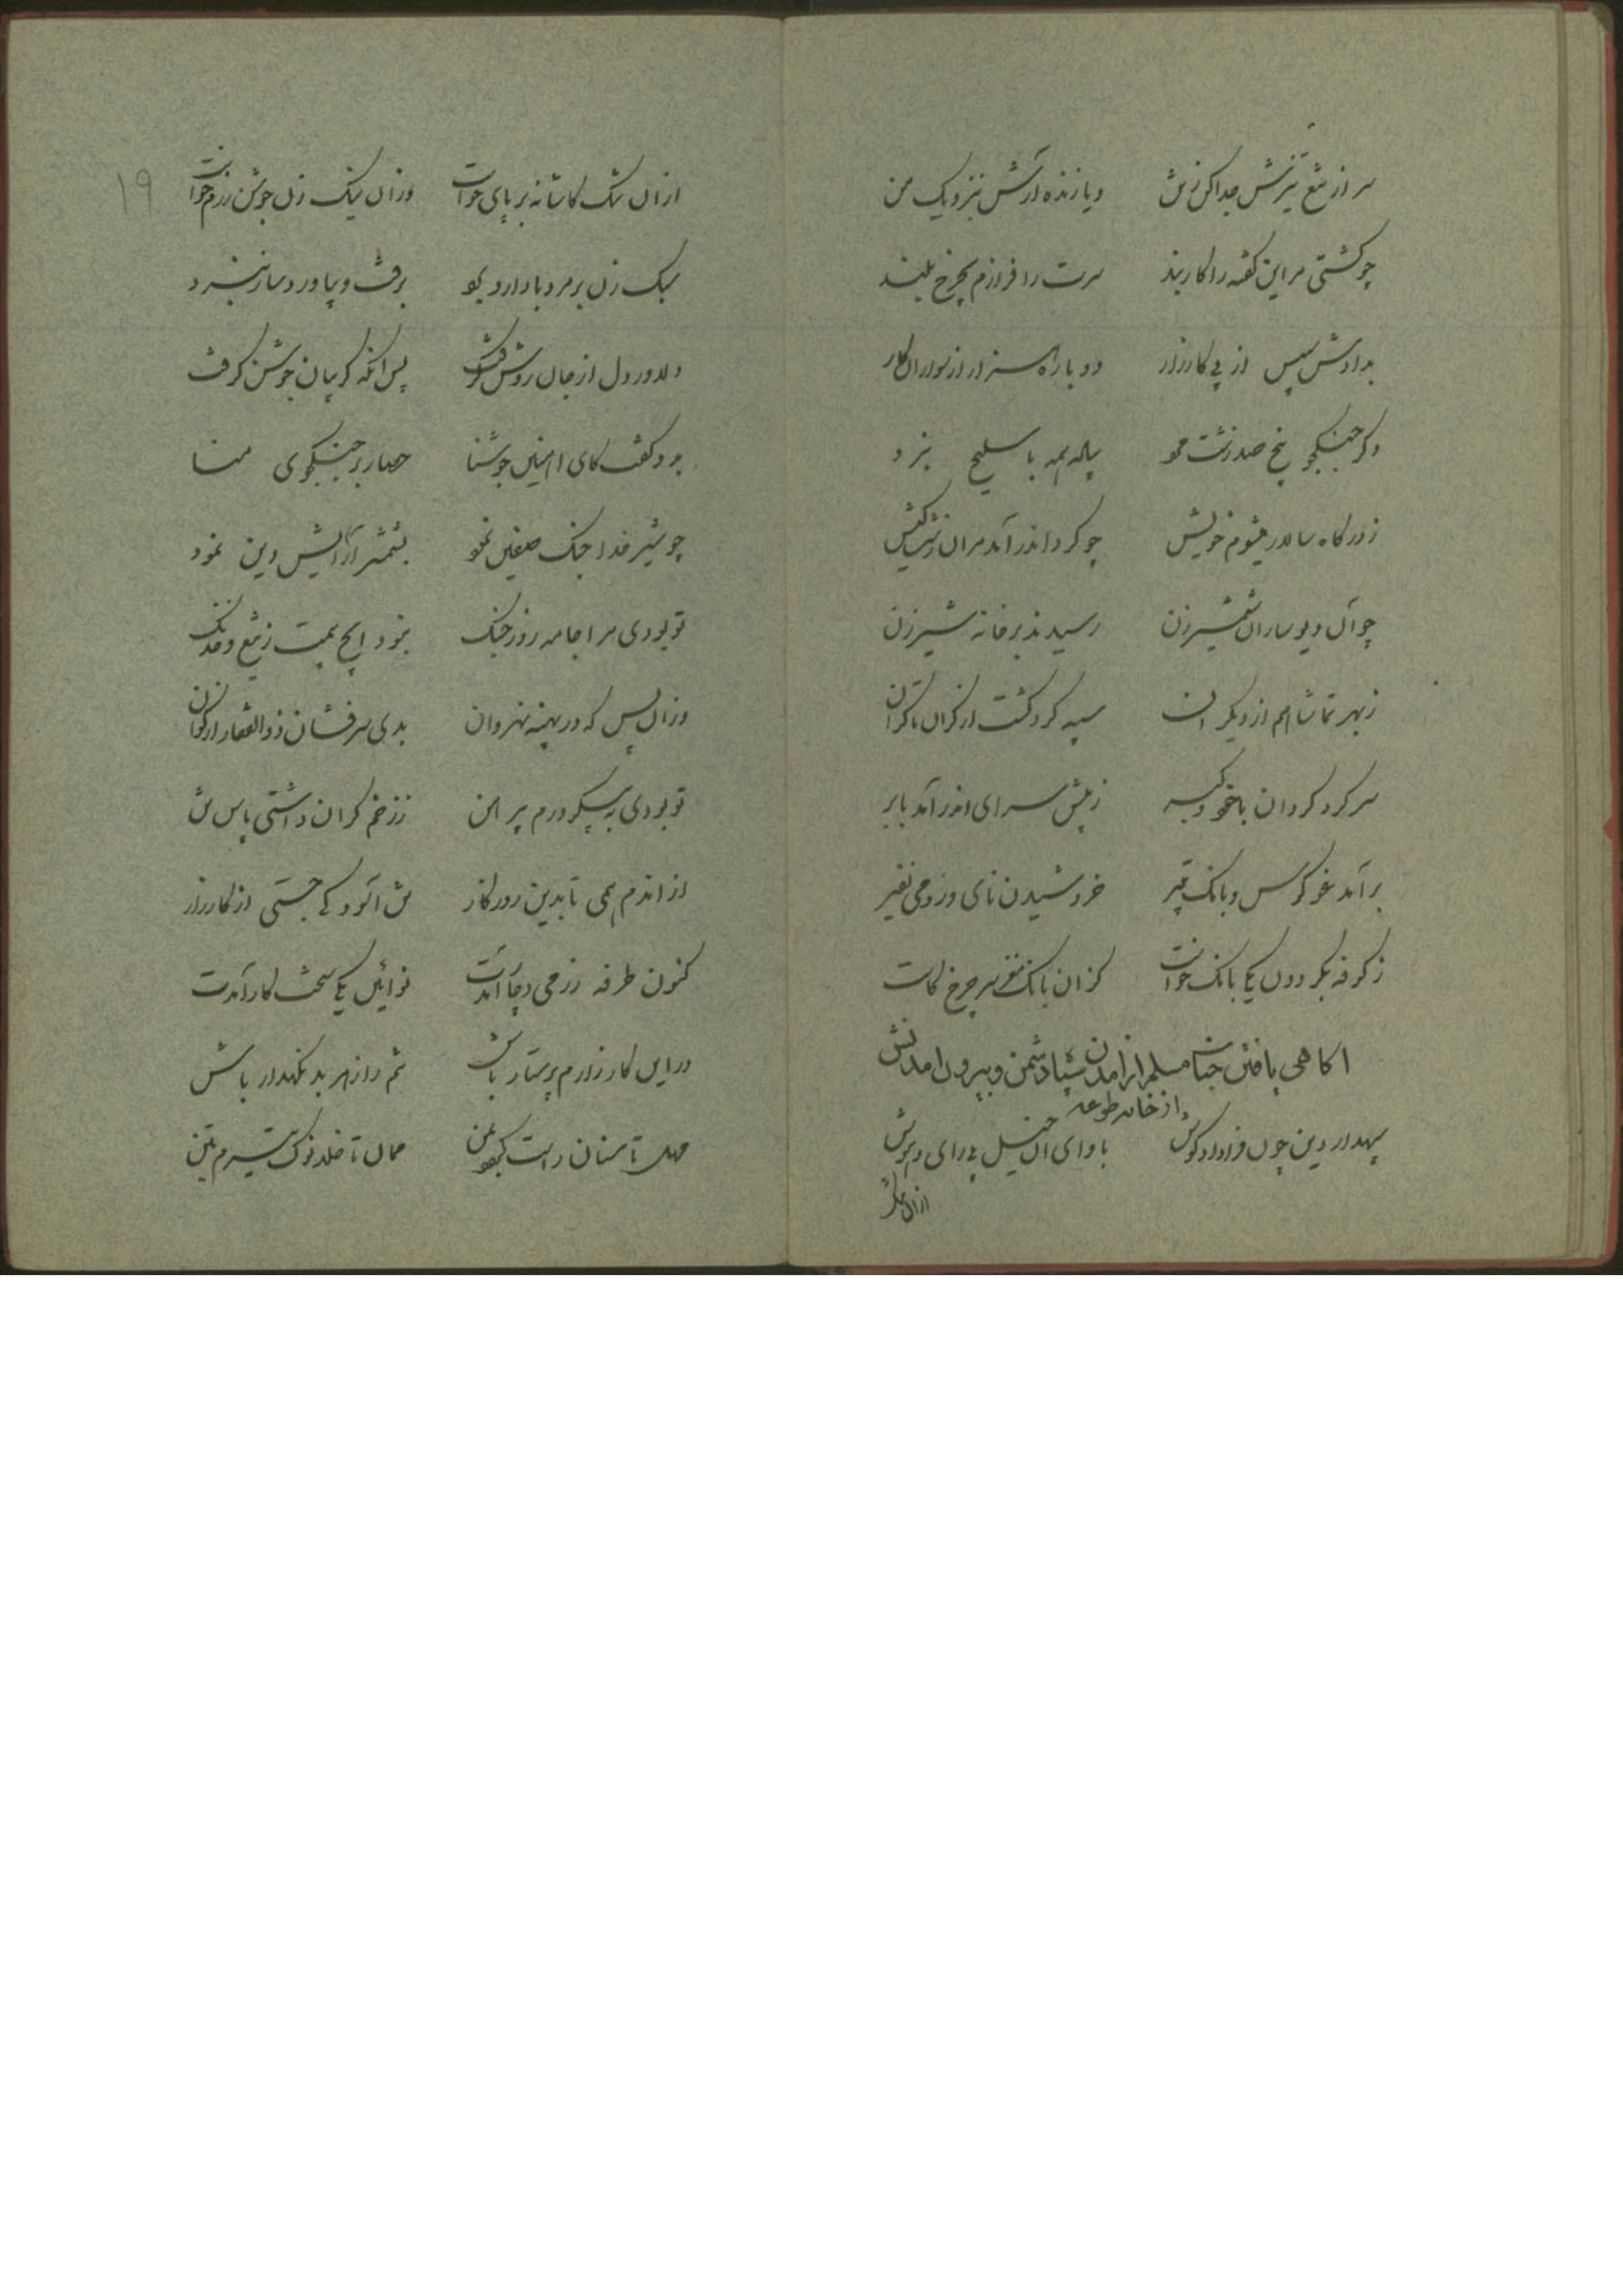 سر از تیغ تیزش جدا کن ز تن ویا زنده آرش بنزدیک من
چو گشتی مر این گفته را کاربند سرت را فرازم بچرخ بلند
بدادش سپس از پی کارزار دو باره هزار از سواران کار
دگر جنگجو پنج صد زشت خو پیاده همه با سلیح نبرد
ز درگاه سالار میشوم خویش چو گرد اندر آمد مر آن زشت کیش
چو آن دیوساران شمشیرزن رسیدند بر خانه شیرزن
ز بهر تماشا هم از دیگران سپه گرد گشت از کران تا کران
سر گرد گردان با خود و گبر ز پیش سرای اندر آمد بابر
بر آمد غو کوس و بانگ تبیر خروشیدن نای و رومی نفیر
ز کوفه بگردون یکی بانگ خواست کزان بانگ مغز سر چرخ کاست
اکاهی یافتن جناب مسلم از آمدن سپاه دشمن و بیرون آمدنش
از خانه طوعه
سپهدار دین چون فرا داد گوش باوای آن خیل بی رای و هوش
از آن تنگ
۱۹
از آن تنگ کاشانه بر پای خواست وز آن نیک زن جوشن رزم خواست
سبک زن بر مرد با دار و برد برفت و بیاورد ساز نبرد
دلاور دل از جان روشن گرفت پس آنگه گریبان جوشن گرفت
بدو گفت کای آهنین جوشنا حصار بر جنگجوی منا
چو شیر خدا جنگ صفین نمود بشمشیر آرایش دین نمود
تو بودی مرا جامه روز جنگ نبود ایچ بیمت ز تیغ و خدنگ
وز آن پس که در پهنه نهروان بدی سرفشان ذوالفقار از گوان
تو بودی به پیکر درم پیرهن ز زخم گران داشتی پاس تن
از آندم همی تا بدین روزگار تن آسود کی جستی از کارزار
کنون طرفه رزمی بجا آمدت نوآئین یکی سخت کار آمدت
در این کارزارم پرستار باش تنم را ز هر بد نگهدار باش
مهل تا سنان راست گردد بمن ممان تا خلد نوک تیرم بتن